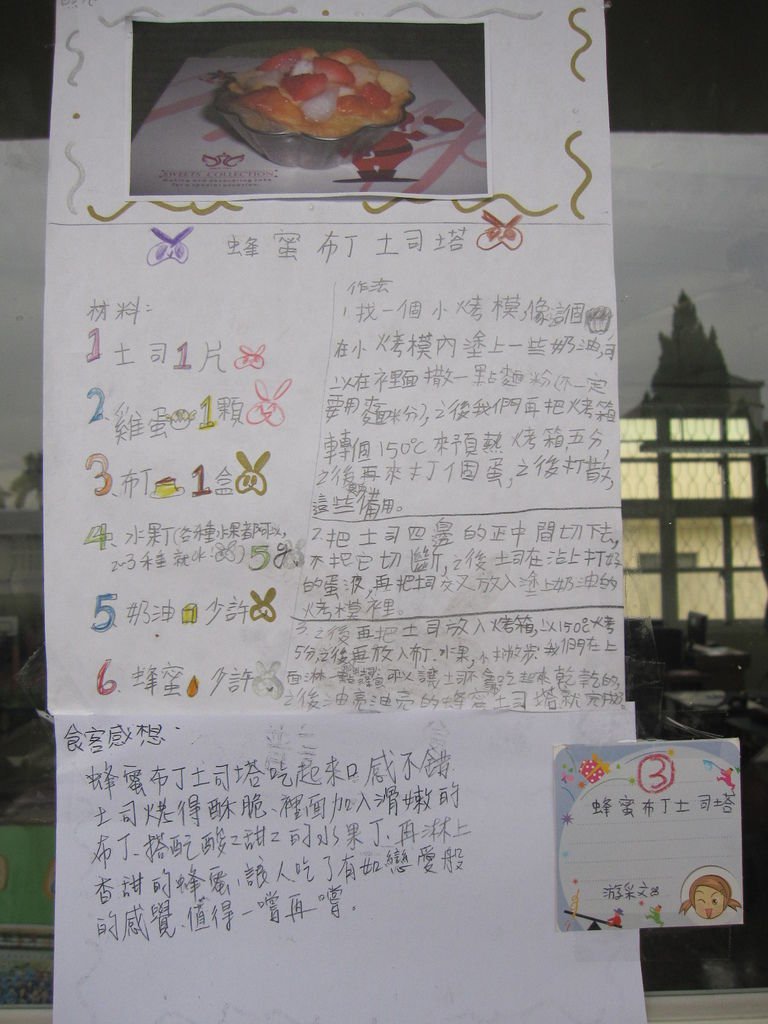 SWEETS COLLECTION
蜂蜜布丁土司塔
材料:
1土司1片
2.雞蛋1顆
3.布丁1盒
4.水果丁(各種水果都可以,
2~3種就ok)5g
5奶油少許
6.蜂蜜少許
作法
1.找一個小烤模,像這個
在小烤模內塗上一些奶油,可
以在裡面撒一點麵粉(不一定
要用麵粉),之後我們再把烤箱
轉個150℃來預熱烤箱五分,
之後再來打1個蛋,之後打散,
這些備用。
2.把土司四邊的正中間切下去,
不把它切斷,之後土司在沾上打好
的蛋液,再把土司交叉放入塗上奶油的
烤模裡。
3.之後再把土司放入烤箱,以150℃烤
5分,之後再放入布丁,水果,我們在上
面淋一可以讓土司不會吃起來乾乾的,
之後油亮油亮的蜂蜜土司塔就完成好
食客感想:
蜂蜜布丁土司塔吃起來口感不錯
土司烤得酥脆、裡面加入滑嫩的
布丁、搭配酸酸甜甜的水果丁、再淋上
香甜的蜂蜜,讓人吃了有如戀愛般
的感覺、值得一嚐再嚐。
3
蜂蜜布丁土司塔
游采文